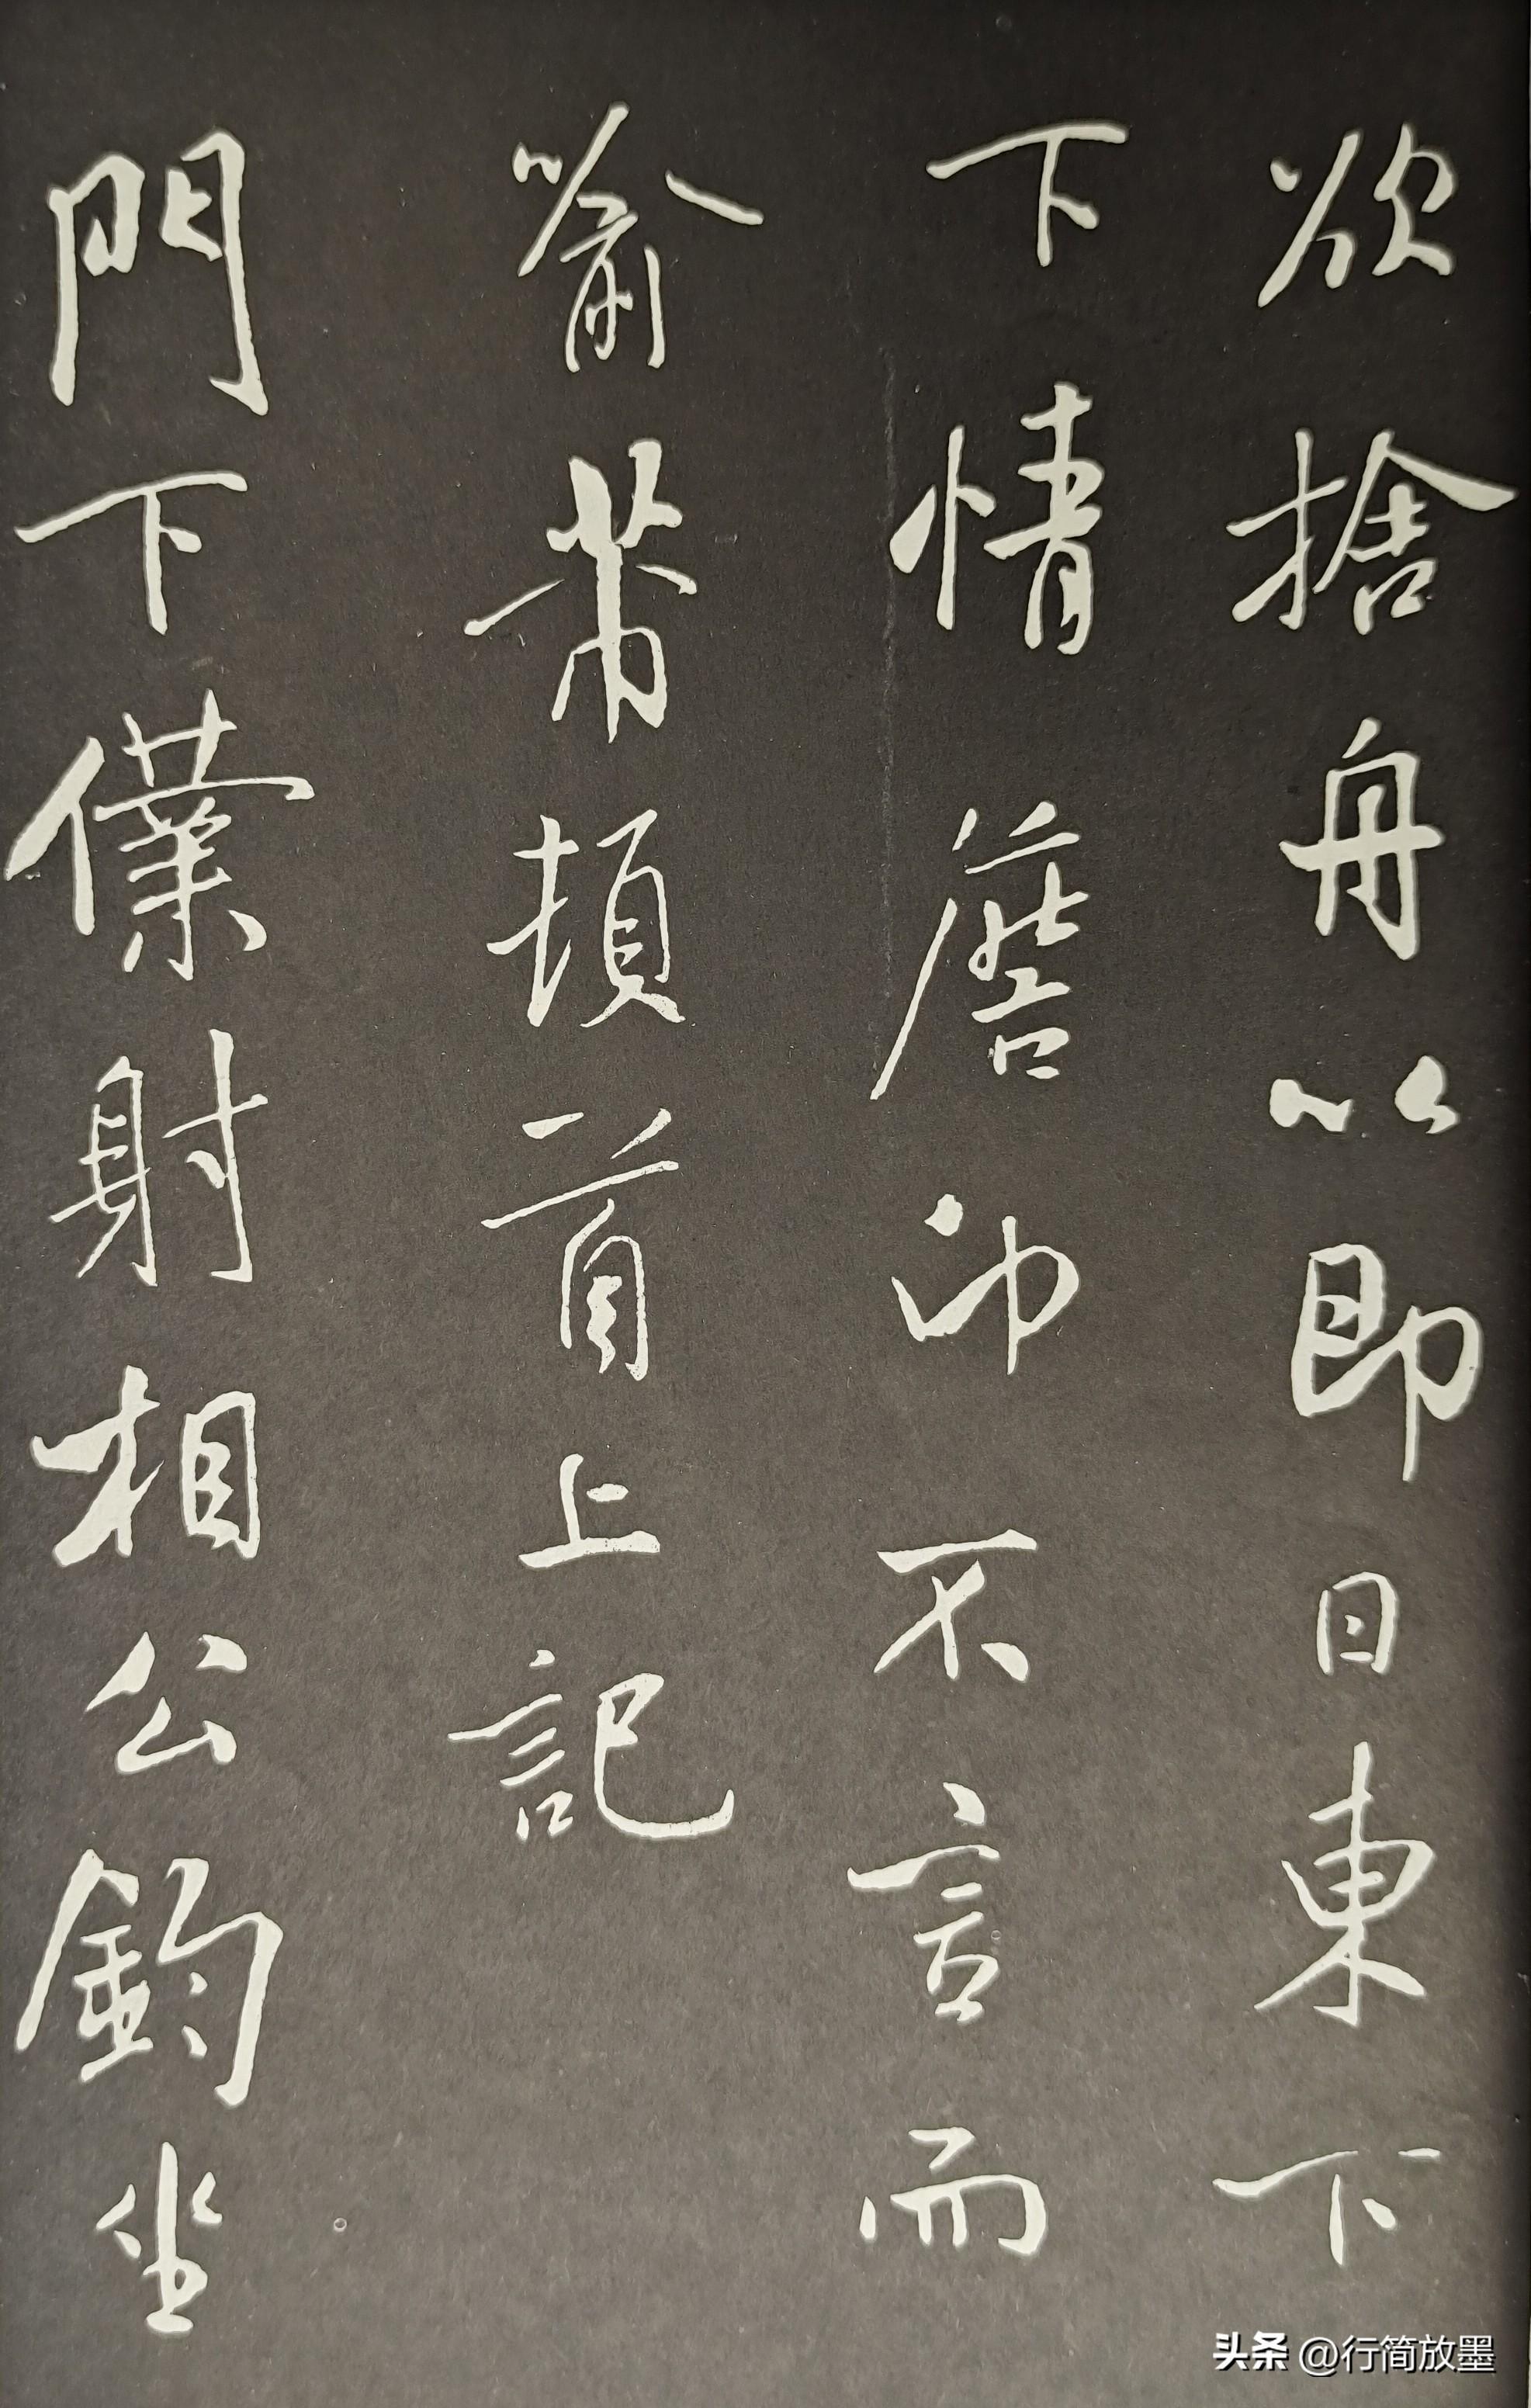 欲捨舟以即日東下
下情詹卬不言而
喻芾頓首上記
門下僕射相公鈞坐
头条 @行简放墨